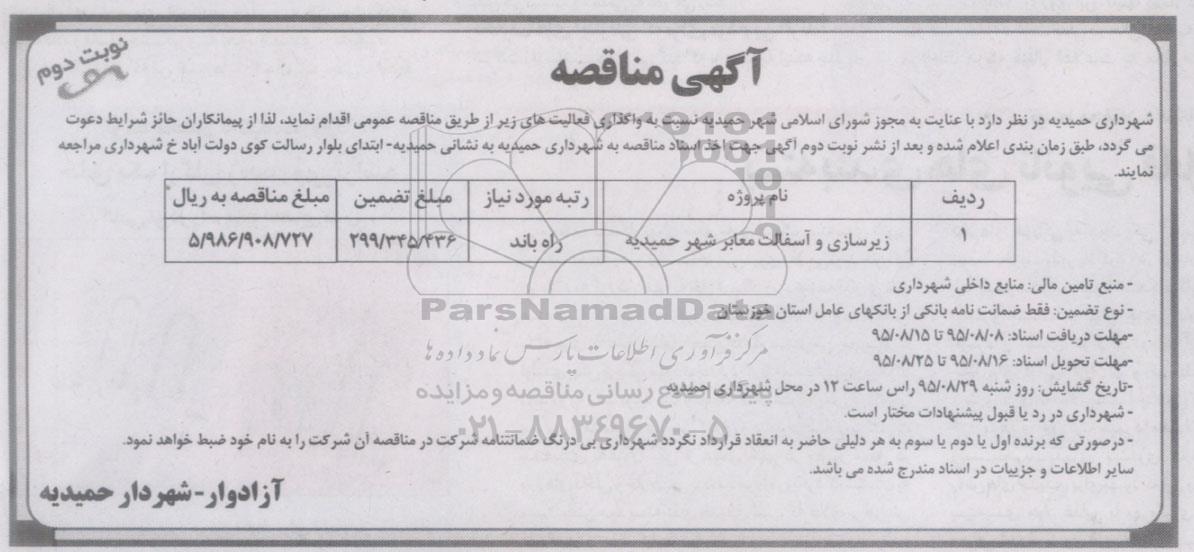 نوبت دوم
آگهی مناقصه
شهرداری حمیدیه در نظر دارد با عنایت به مجوز شورای اسلامی شهر حمیدیه نسبت به واگذاری فعالیت های زیر از طریق مناقصه عمومی اقدام نماید، لذا از پیمانکاران حائز شرایط دعوت
می گردد، طبق زمان بندی اعلام شده و بعد از نشر نوبت دوم آگهی جهت اخذ اسناد مناقصه به شهرداری حمیدیه به نشانی حمیدیه- ابتدای بلوار رسالت کوی دولت آباد خ شهرداری مراجعه
نمایند.
ردیف نام پروژه رتبه مورد نیاز مبلغ تضمین مبلغ مناقصه به ریال
۱ زیرسازی و آسفالت معابر شهر حمیدیه راه باند ۲۹۹/۳۴۵/۴۳۶ ۵/۹۸۶/۹۰۸/۷۲۷
- منبع تامین مالی: منابع داخلی شهرداری
- نوع تضمین: فقط ضمانت نامه بانکی از بانکهای عامل استان خوزستان
-مهلت دریافت اسناد: ۹۵/۰۸/۰۸ تا ۹۵/۰۸/۱۵
-مهلت تحویل اسناد: ۹۵/۰۸/۱۶ تا ۹۵/۰۸/۲۵
-تاریخ گشایش: روز شنبه ۹۵/۰۸/۲۹ راس ساعت ۱۲ در محل شهرداری حمیدیه
- شهرداری در رد یا قبول پیشنهادات مختار است.
- درصورتی که برنده اول یا دوم یا سوم به هر دلیلی حاضر به انعقاد قرارداد نگردد شهرداری بی درنگ ضمانتنامه شرکت در مناقصه آن شرکت را به نام خود ضبط خواهد نمود.
سایر اطلاعات و جزییات در اسناد مندرج شده می باشد.
آزادوار-شهردار حمیدیه
ParsNamadData
مرکز فرآوری اطلاعات پارس نماد داده ها
پایگاه اطلاع رسانی مناقصه و مزایده
۰۲۱-۸۸۳۴۹۶۷۰-۵